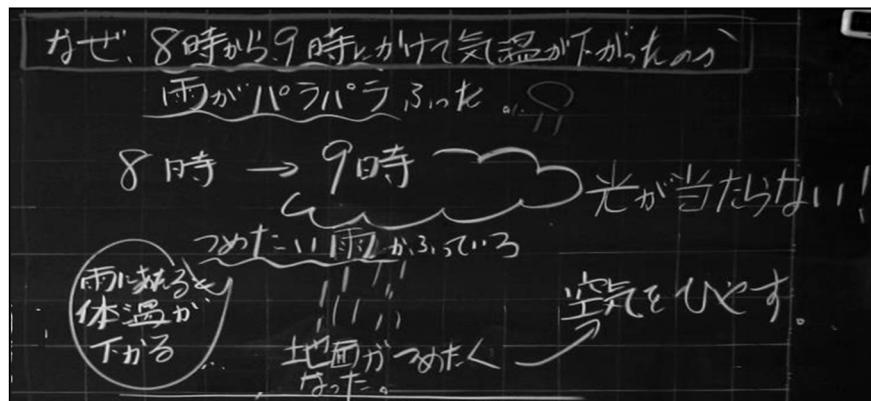 なぜ、8時から9時にかけて気温が下がったのか
雨がパラパラふった。
8時→9時
光が当たらない!
つめたい雨がふっている
雨にぬれると
体温が
下がる
地面がつめたく
なった。
空気をひやす。